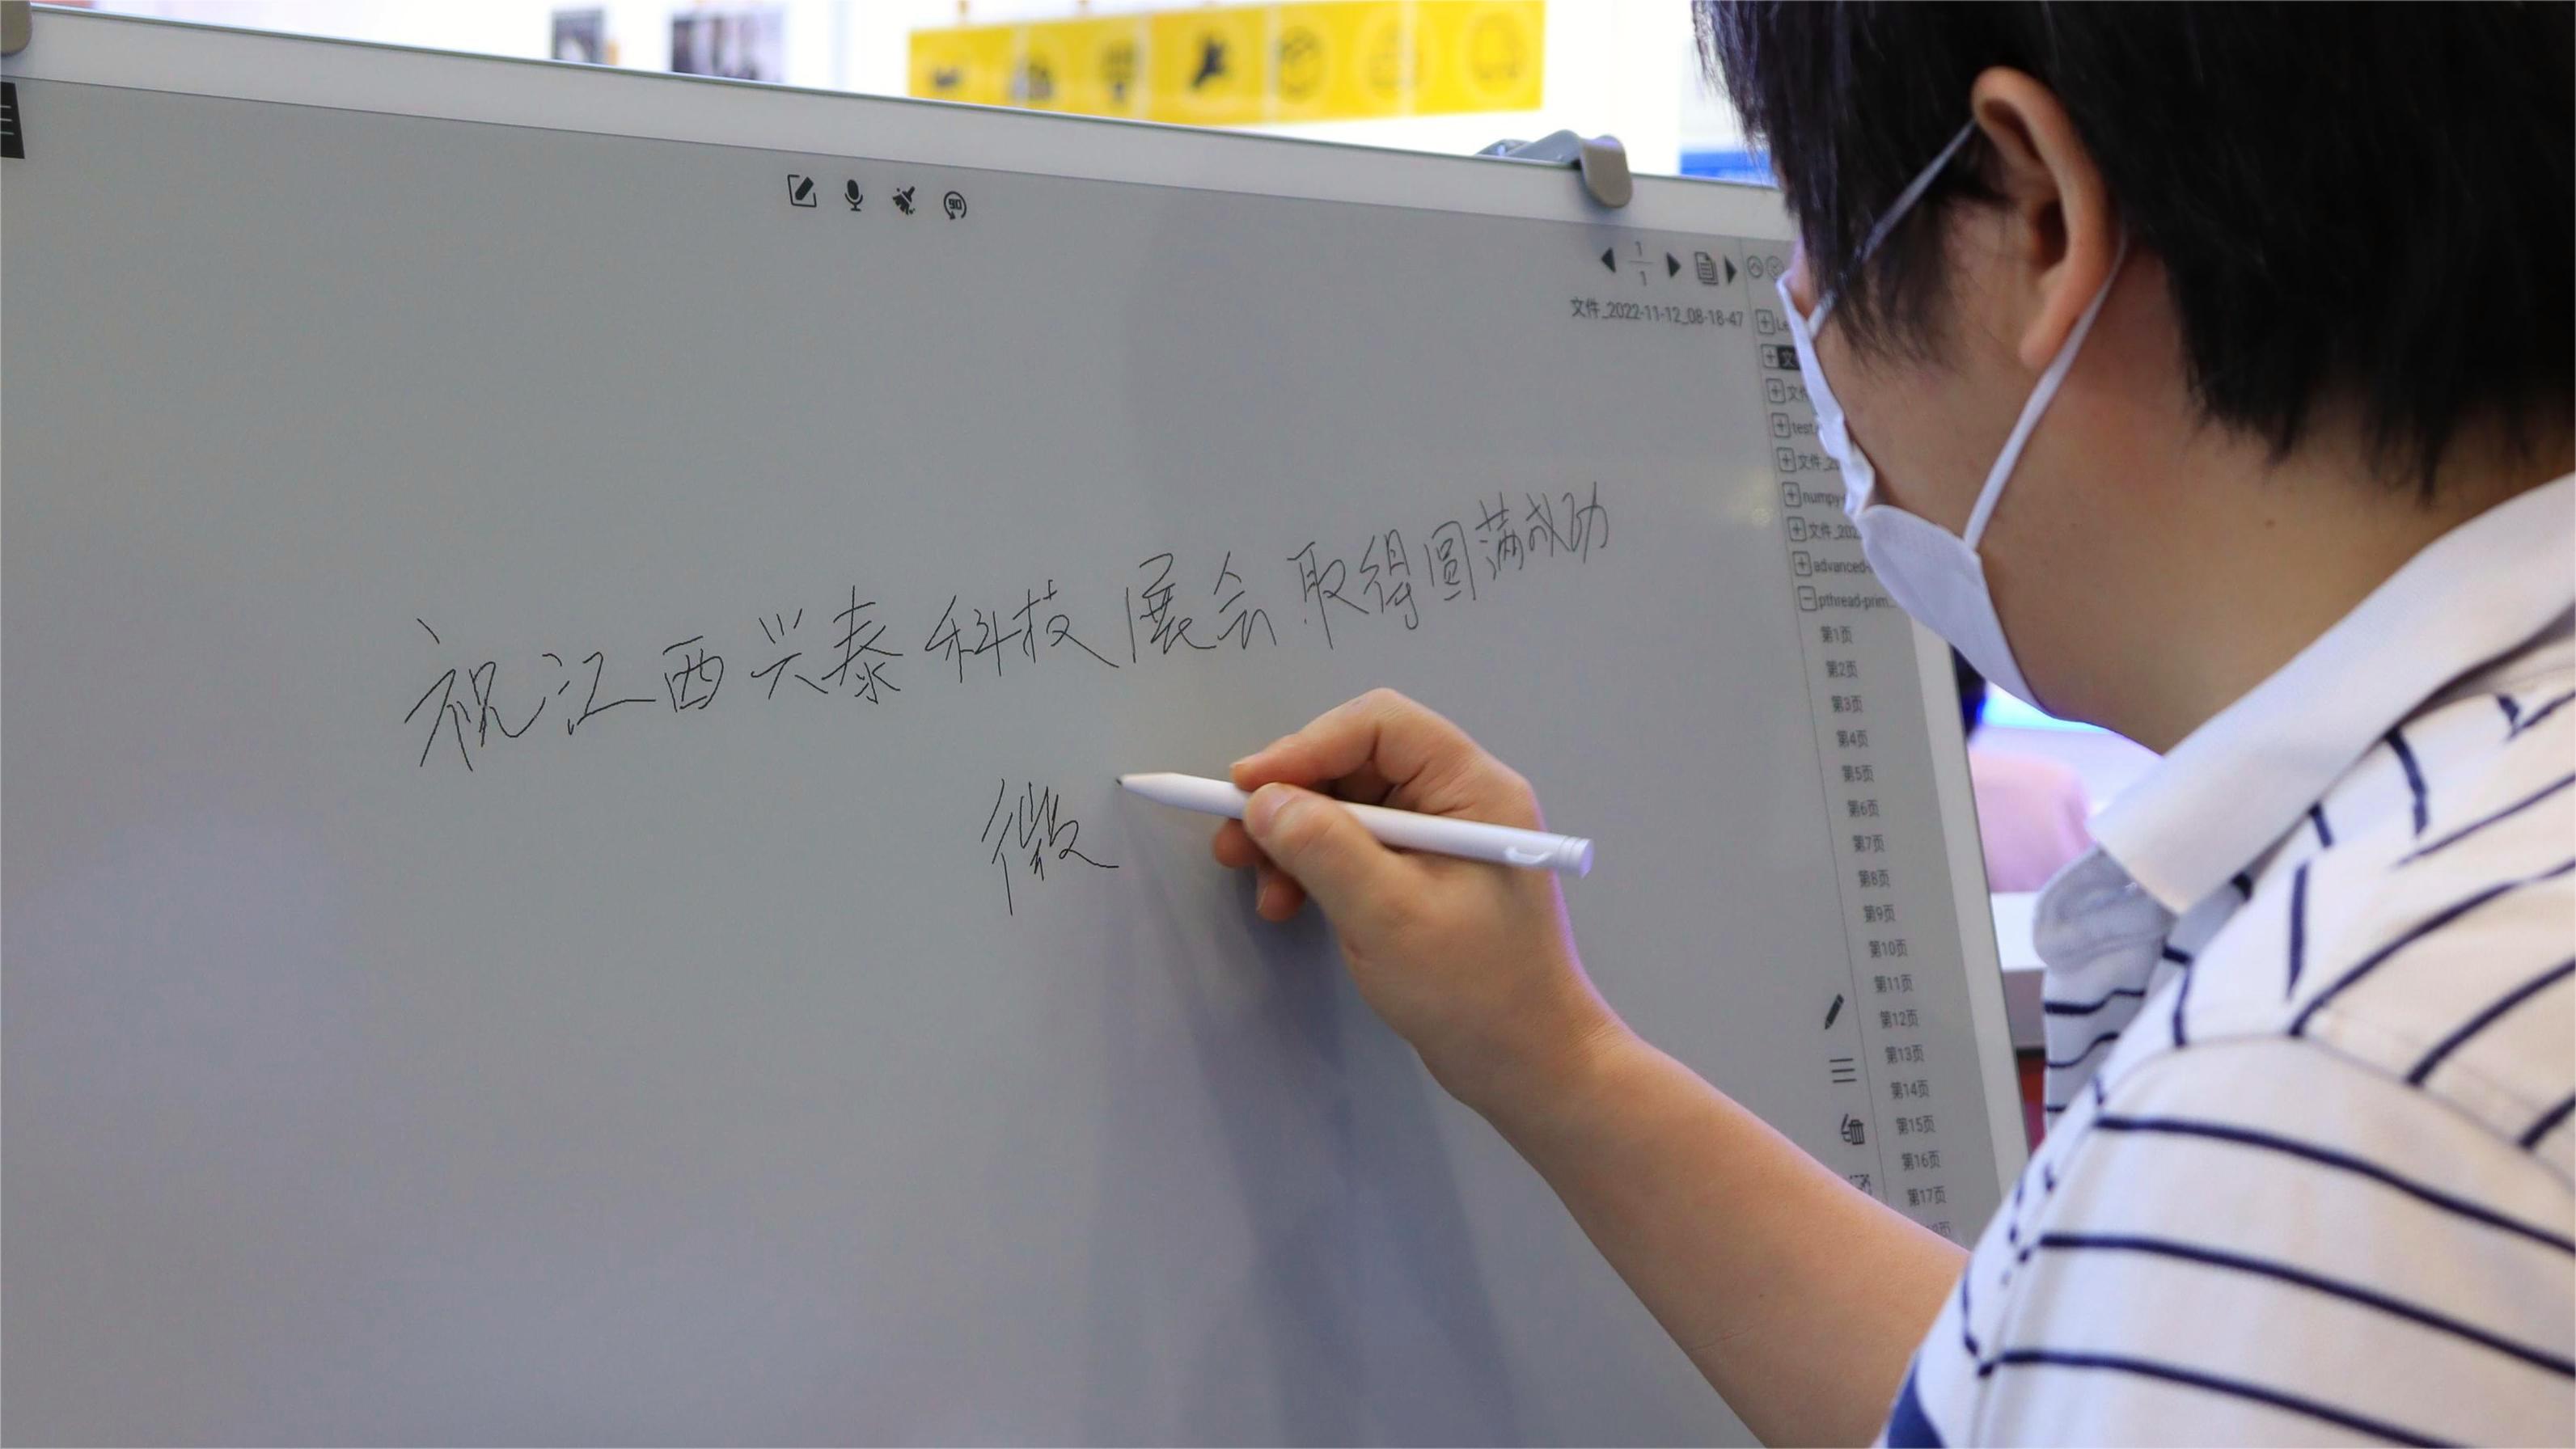 90
1
1
文件_2022-11-12_08-18-47
Le
文
文件
test
文件_20
numpy-
文件_202
advanced-
pthread-prim...
第1页
第2页
第3页
第4页
第5页
第6页
第7页
第8页
第9页
第10页
第11页
第12页
第13页
第14页
第15页
第16页
第17页
祝江西兴泰科技展会取得圆满成功
微